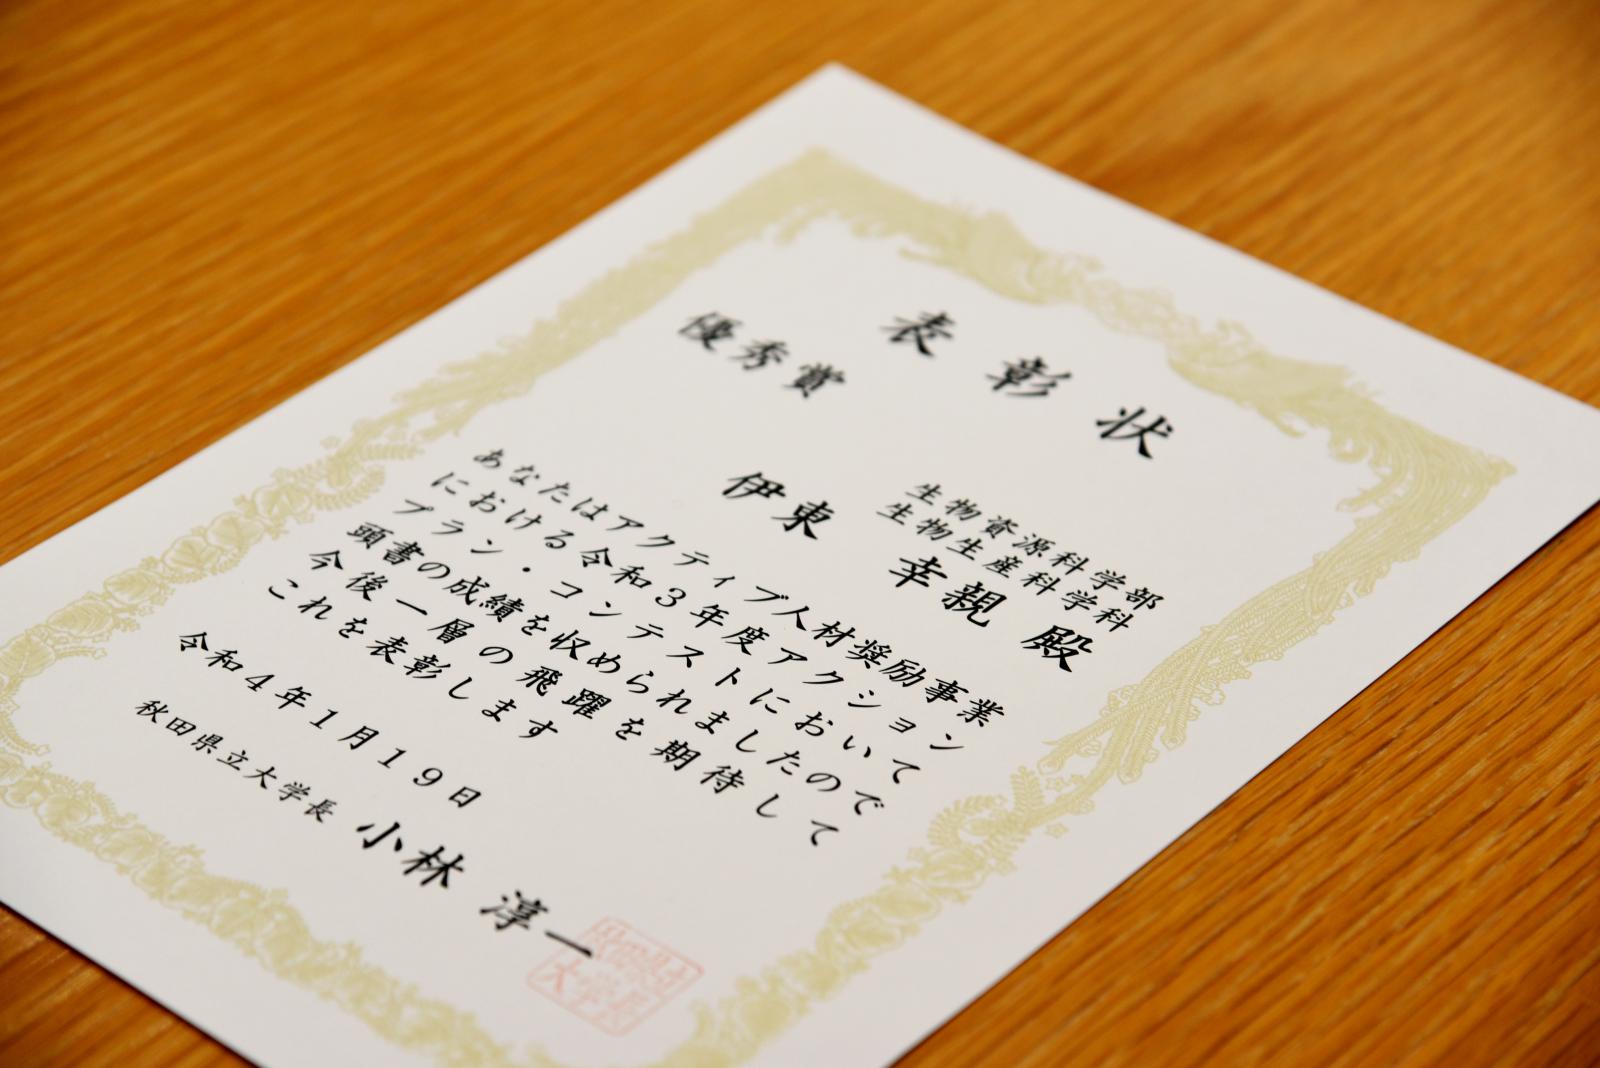 表彰状
優秀賞
生物資源科学部
生物生産科学科
伊東 幸親 殿
あなたはアクティブ人材奨励事業
における令和3年度アクション
プラン・コンテストにおいて
頭書の成績を収められましたので
今後一層の飛躍を期待して
これを表彰します
令和4年1月19日
秋田県立大学長 小林 淳一